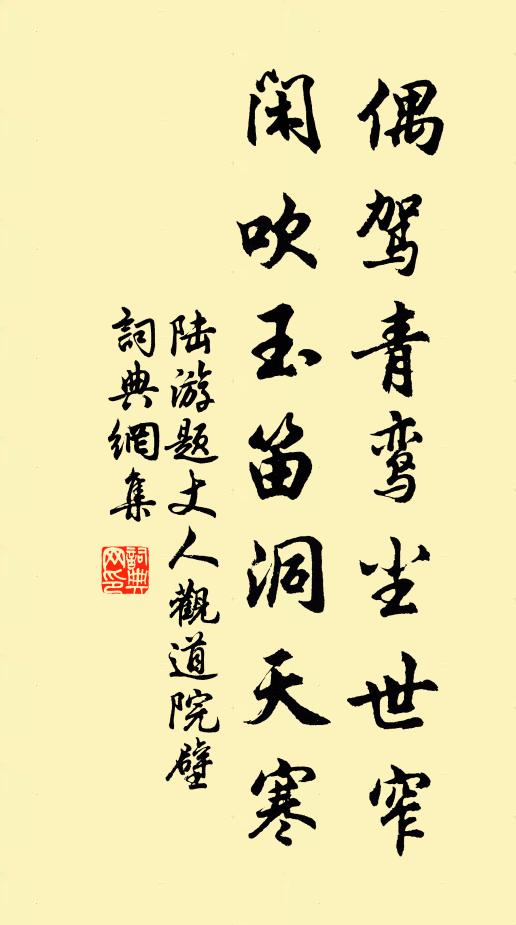 偶驾青鸾尘世窄
闲吹玉笛洞天寒
陆游题丈人觀道院壁
詞典網集
詞典网印